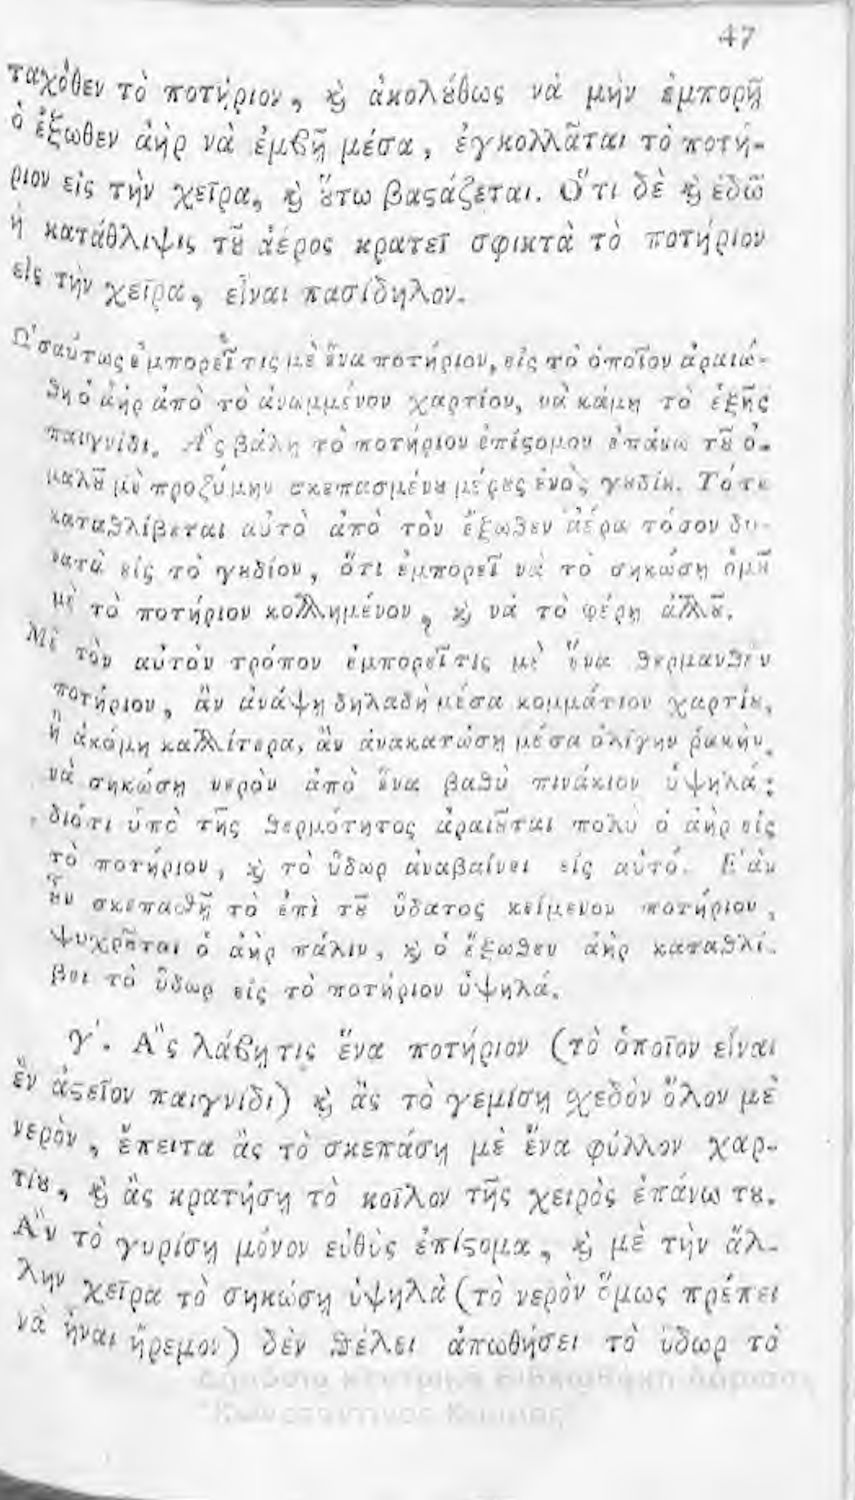 47
ταχόθεν τὸ ποτήριον, ϗ ἀκολȣ́θως νὰ μὴν ἐμπορῇ
ὁ ἔξωθεν ἀὴρ νὰ ἐμβῇ μέσα, ἐγκολλᾶται τὸ ποτή-
ριον εἰς τὴν χεῖρα, ϗ ȣ̔́τω βαϛάζεται. Ὅτι δὲ ϗ ἐδῶ
ἡ κατάθλιψις τȣ͂ ἀέρος κρατεῖ σφικτὰ τὸ ποτήριον
εἰς τὴν χεῖρα, εἶναι πασίδηλον.
Ὡσαύτως ἐμπορεῖ τις μὲ ἕνα ποτήριον, εἰς τὸ ὁποῖον ἀραιώ-
θη ὁ ἀὴρ ἀπὸ τὸ ἀναμμένον χαρτίον, νὰ κάμῃ τὸ ἑξῆς
παιγνίδι. Ἂς βάλῃ τὸ ποτήριον ἐπίϛομον ἐπάνω τȣ͂ ὁ-
μαλȣ͂ μὲ προζύμην σκεπασμένȣ μέρȣς ἑνὸς γȣδίȣ. Τότε
καταθλίβεται αὐτὸ ἀπὸ τὸν ἔξωθεν ἀέρα τόσον δυ-
νατὰ εἰς τὸ γȣδίον, ὅτι ἐμπορεῖ νὰ τὸ σηκώσῃ ὁμȣ͂
μὲ τὸ ποτήριον κολλημένον, ϗ νὰ τὸ φέρῃ ἀλλȣ͂.
Μὲ τὸν αὐτὸν τρόπον ἐμπορεῖ τις μὲ ἕνα θερμανθὲν
ποτήριον, ἂν ἀνάψῃ δηλαδὴ μέσα κομμάτιον χαρτίȣ,
ἢ ἀκόμη καλλίτερα, ἂν ἀνακατώσῃ μέσα ὀλίγην ῥακὴν,
νὰ σηκώσῃ νερὸν ἀπὸ ἕνα βαθὺ πινάκιον ὑψηλά;
διότι ὑπὸ τῆς θερμότητος ἀραιȣ͂ται πολὺ ὁ ἀὴρ εἰς
τὸ ποτήριον, ϗ τὸ ὕδωρ ἀναβαίνει εἰς αὐτό. Ἐὰν
ȣ̓͂ν σκεπασθῇ τὸ ἐπὶ τȣ͂ ὕδατος κείμενον ποτήριον,
ψυχρȣ͂ται ὁ ἀὴρ πάλιν, ϗ ὁ ἔξωθεν ἀὴρ καταθλί-
βει τὸ ὕδωρ εἰς τὸ ποτήριον ὑψηλά.
γ΄. Ἂς λάβῃ τις ἕνα ποτήριον (τὸ ὁποῖον εἶναι
ἓν ἀϛεῖον παιγνίδι) ϗ ἂς τὸ γεμίσῃ σχεδὸν ὅλον μὲ
νερὸν, ἔπειτα ἂς τὸ σκεπάσῃ μὲ ἕνα φύλλον χαρ-
τίȣ, ϗ ἂς κρατήσῃ τὸ κοῖλον τῆς χειρὸς ἐπάνω τȣ.
Ἂν τὸ γυρίσῃ μόνον εὐθὺς ἐπίϛομα, ϗ μὲ τὴν ἄλ-
λην χεῖρα τὸ σηκώσῃ ὑψηλὰ (τὸ νερὸν ὅμως πρέπει
νὰ ἦναι ἤρεμον) δὲν θέλει ἀπωθήσει τὸ ὕδωρ τὸ